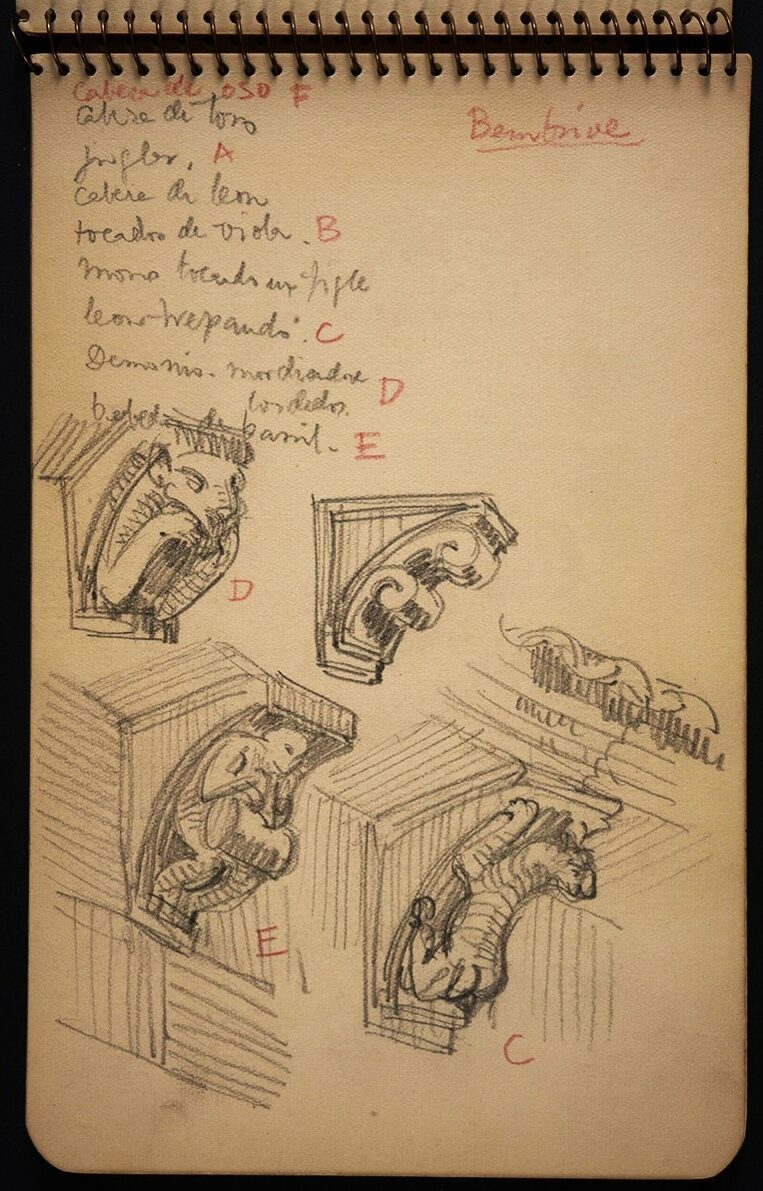 cabeza de oso F
Bembrive
cabeza de toro
juglar, A
cabeza de leon
tocador de viola. B
Mono tocando un
leon trepando. C
Demonio. mordiendose D
los dedos.
bebedor de barril. E
D
E
C